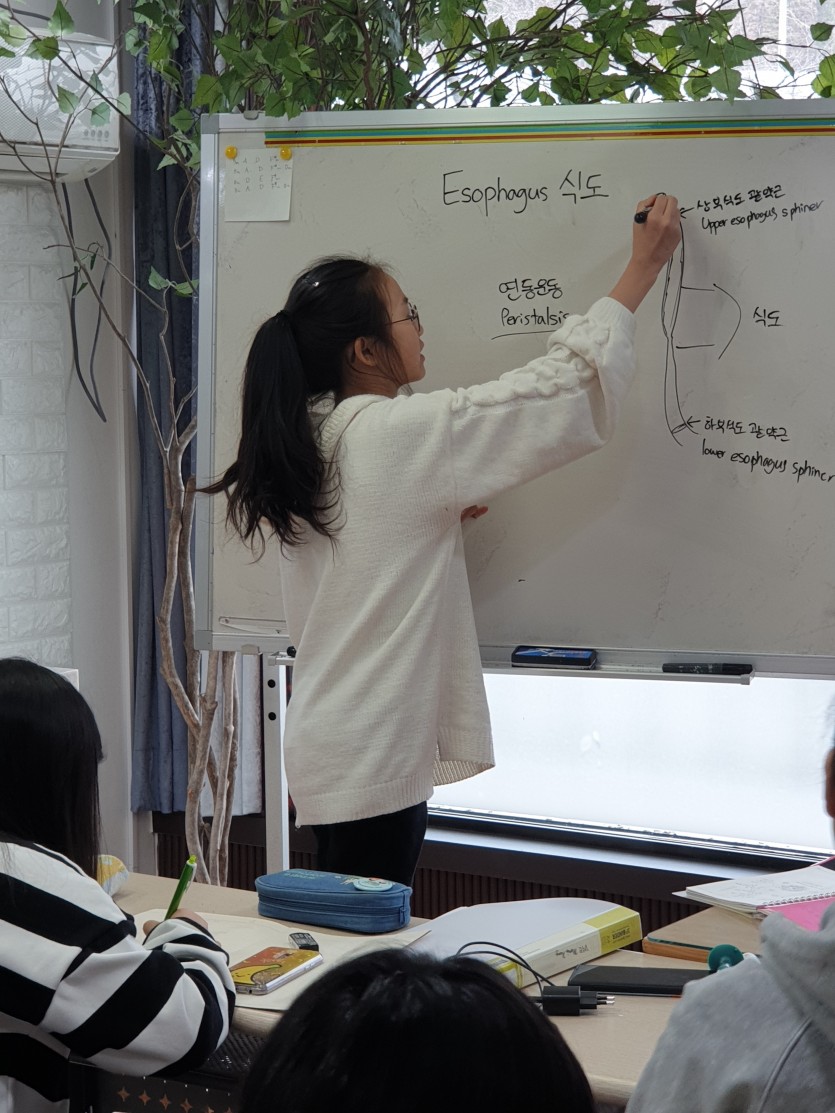 Esophagus 식도
연동운동
Peristalsis
상부식도 괄약근
Upper esophagus, sphiner
식도
하부식도 괄약근
lower esophagus sphincr